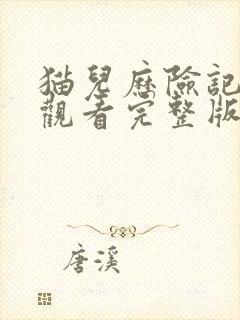 猫兒歷險記
觀看完整版
唐溪